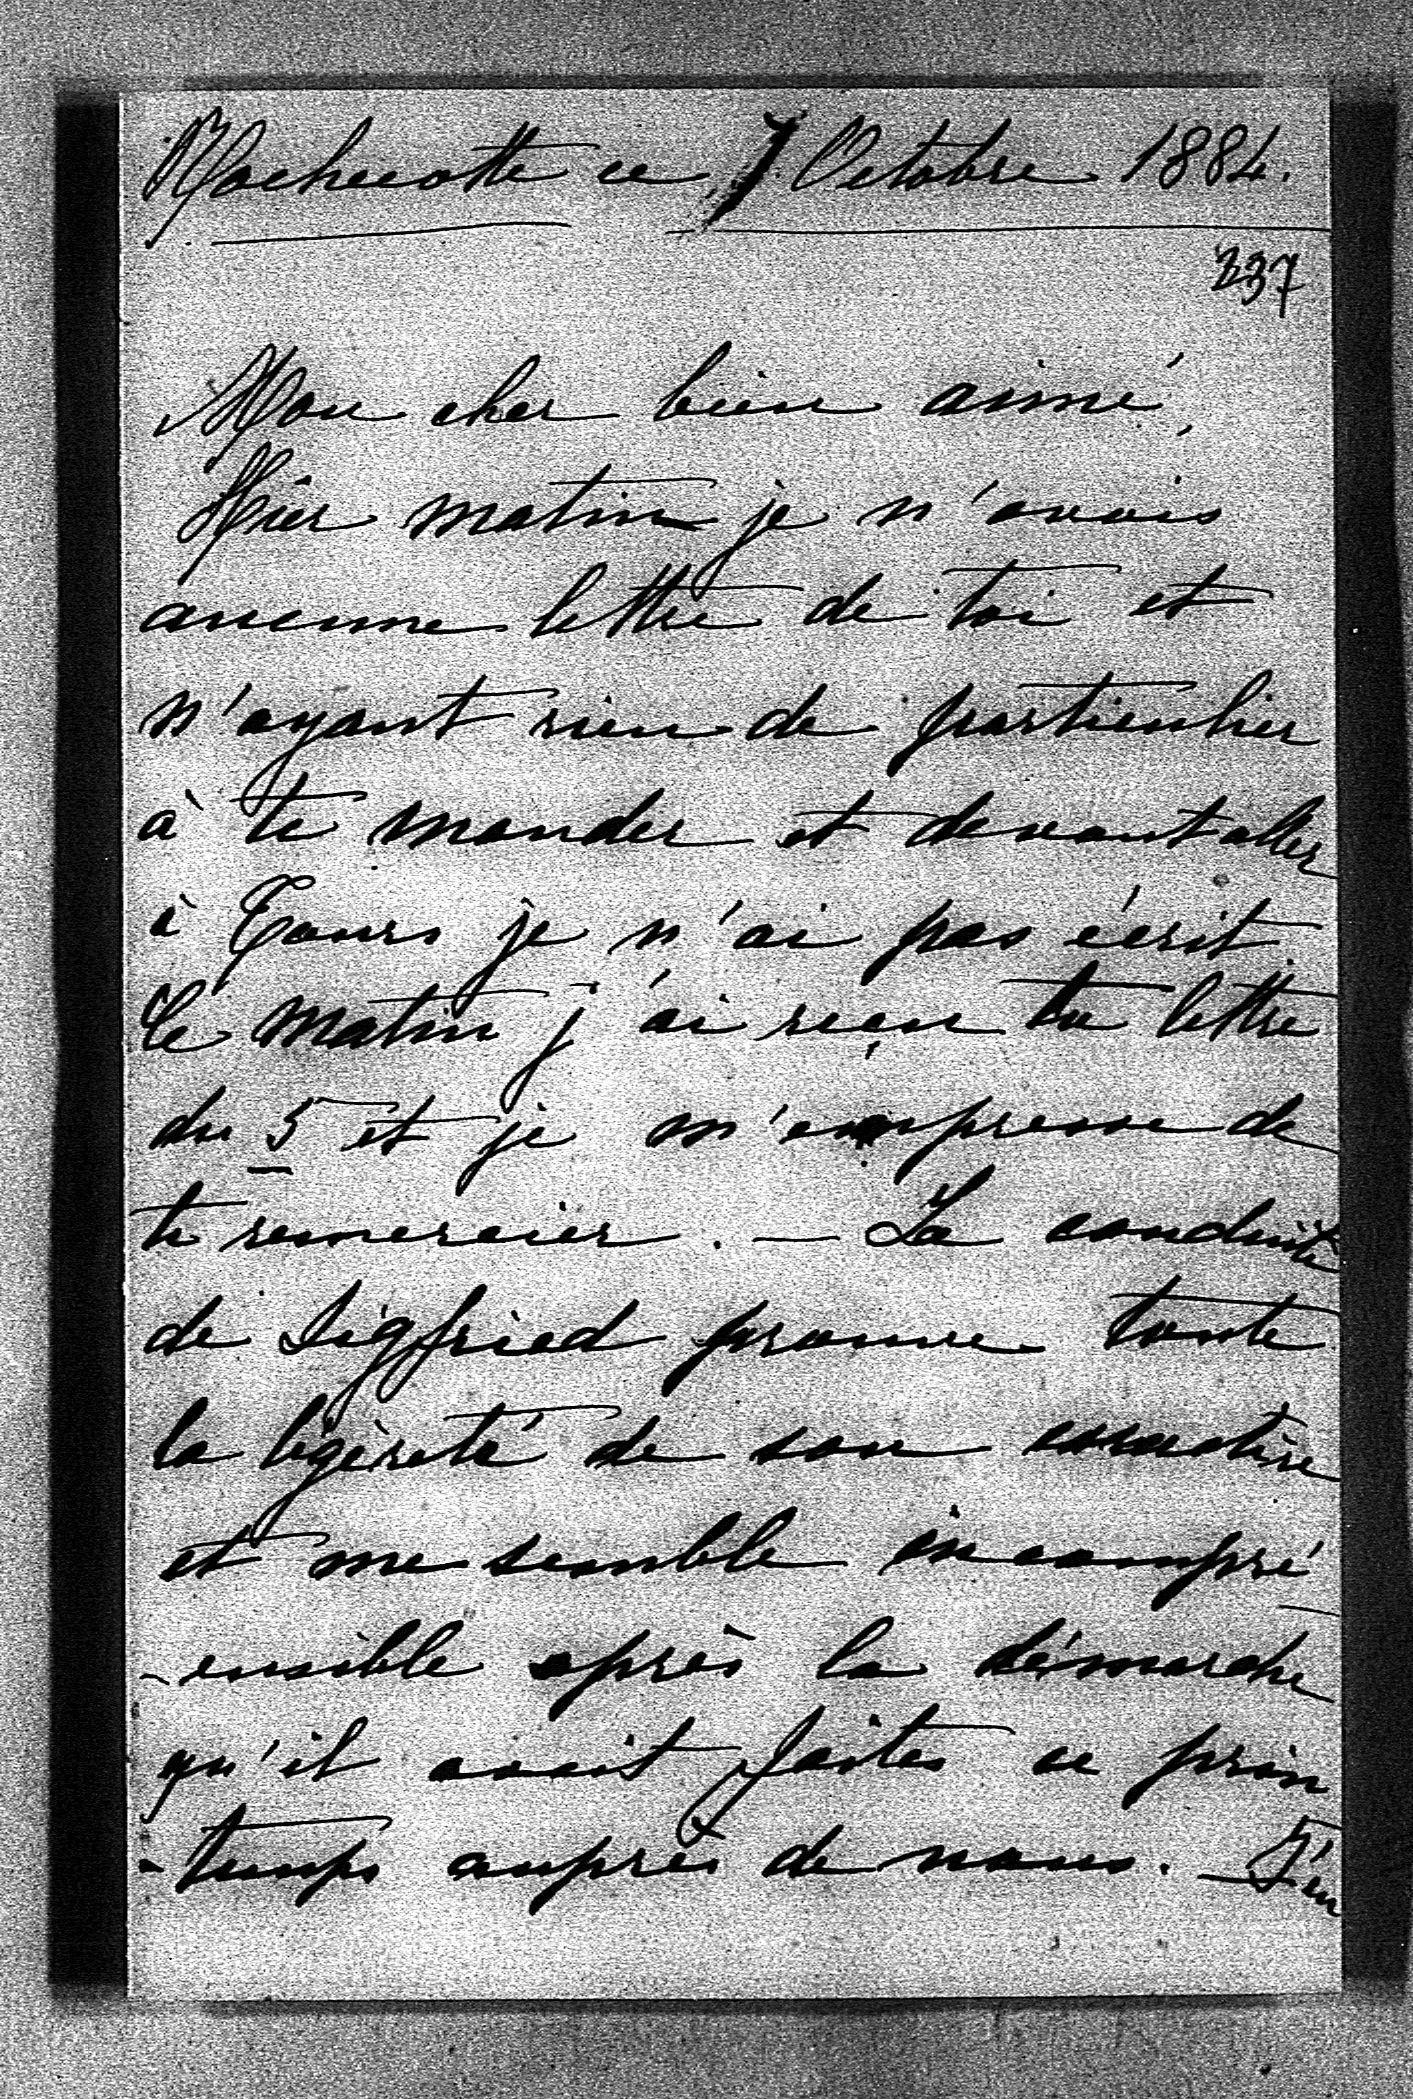 Rochecotte ce 7 Octobre 1884.
237
Mon cher bien aimé,
Hier matin je n'avais
aucune lettre de toi et
n'ayant rien de particulier
à te mander et devant aller
à Tours je n'ai pas écrit.
Ce matin j'ai reçu ta lettre
du 5 et je m'empresse de
te remercier. — La conduite
de Sigfried prouve toute
la légèreté de son caractère
et me semble incompré
-ensible après la démarche
qu'il avait faites ce prin
-temps auprès de nous. — J'en